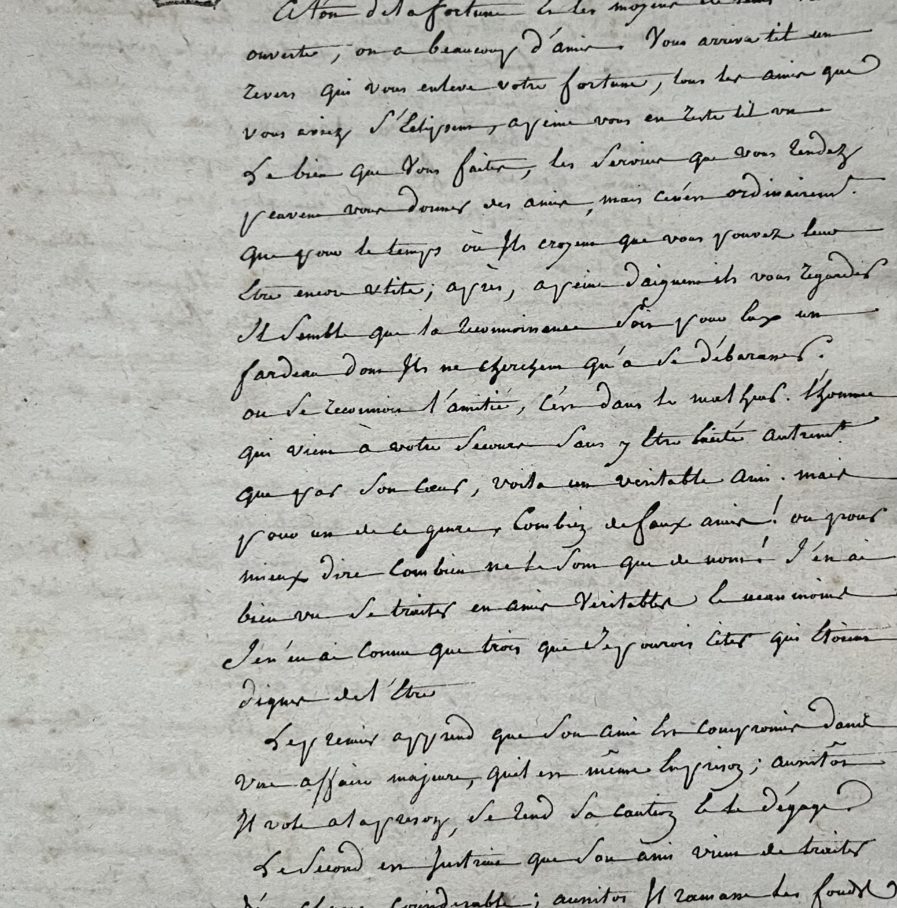 A ton de la fortune Et les moyens de tenir
ouverte, on a beaucoup d'amis. Vous arrive til un
revers qui vous enleve votre fortune, tous les amis que
vous aviez S'Eclipsent, apeine vous en reste til un
Le bien que Vous faites, les Services que vous rendez
peuvent vous donner des amis, mais c'ést ordinairemt.
que pour le temps où Ils croyent que vous pouvez leur
Etre encore Utile; après, apeine daignent ils vous regarder
Il Semble que la reconnoissance Soit pour Eux un
fardeau dont Ils ne cherchent qu'a Se débarasser.
ou Se reconnoit l'amitié, C'ést dans le malheur. l'homme
qui vient à votre Secours Sans y Etre Excité autremt.
que par Son Cœur, voila un veritable Ami. mais
pour un de ce genre, Combien de faux amis! ou pour
mieux dire Combien ne le Sont que de nom! J'en ai
bien vu Se traiter en amis Veritables Et neanmoins
Je n'en ai Connu que trois que Je pourois Citer qui Etoient
dignes de l'Etre
Le premier apprend que Son Ami Est compromis dans
Une affaire majeure, qu'il est même En prison; aussitôt
Il vole a la prison, Se rend Sa Caution Et le dégage.
Le Second est Instruit que Son ami vient de traiter
considerable; aussitot Il ramasse des fonds